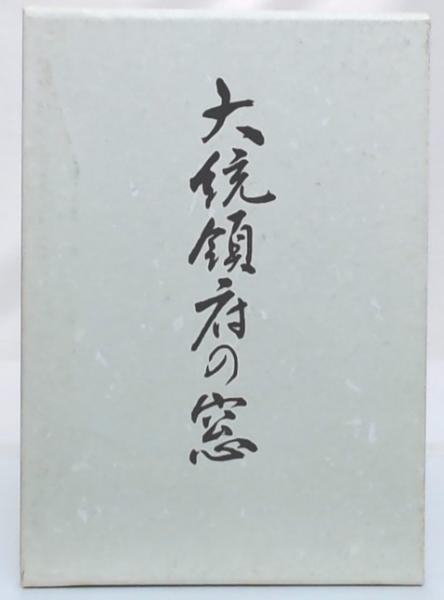 大統領府の窓